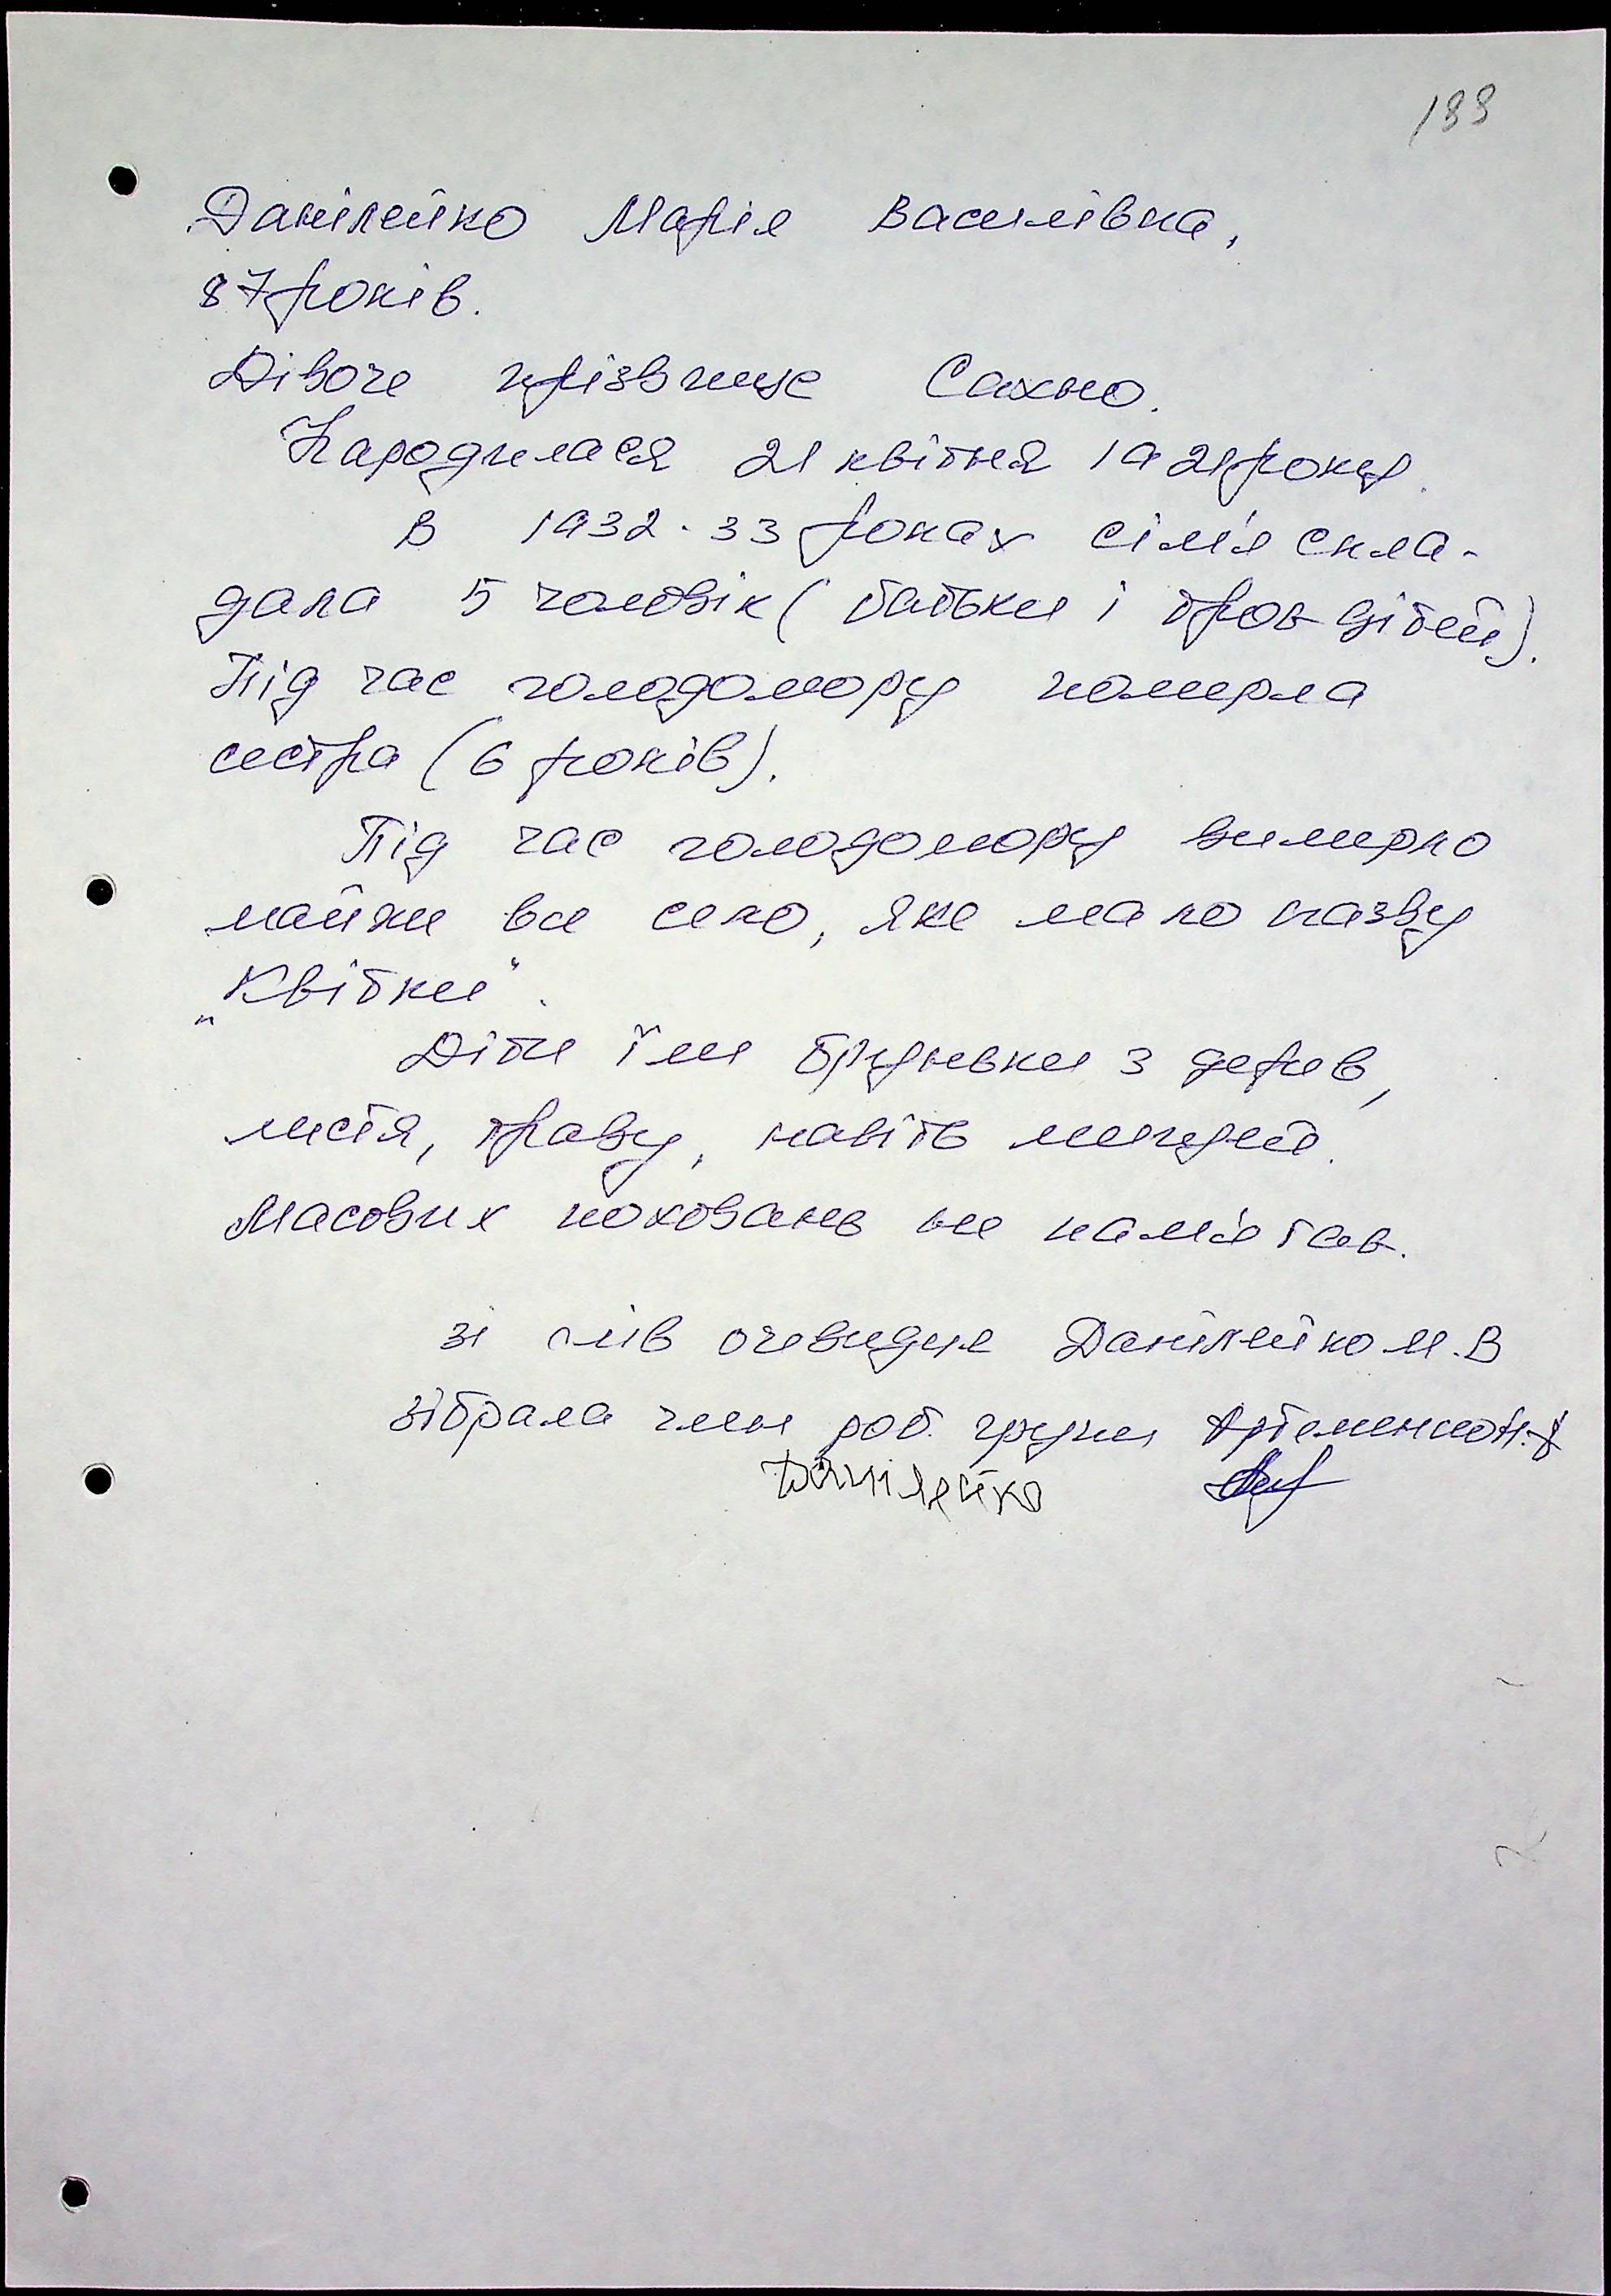 199
Данілейко Марія Василівна,
87 років.
Дівоче прізвище Сахно.
Народилася 21 квітня 1921 року.
В 1932-33 роках сім'я скла-
дала 5 чоловік (батьки і троє дітей).
Під час голодомору померла
сестра (6 років).
Під час голодомору вимерло
майже все село, яке мало назву
„Квітки".
Діти їли бруньки з дерев,
листя, траву, навіть
Масових поховань не пам'ятає.
зі слів очевидця Данілейко М.В
зібрала член роб. групи Артеменко Н.
Данілейко